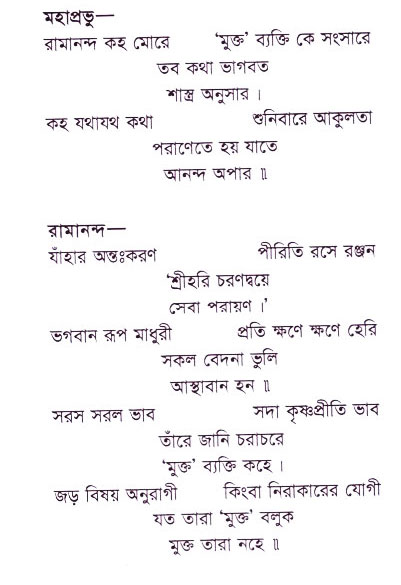 মহাপ্রভু—
রামানন্দ কহ মোরে ‘মুক্ত’ ব্যক্তি কে সংসারে
তব কথা ভাগবত
শাস্ত্র অনুসার ।
কহ যথাযথ কথা শুনিবারে আকুলতা
পরাণেতে হয় যাতে
আনন্দ অপার ॥
রামানন্দ—
যাঁহার অন্তঃকরণ পীরিতি রসে রঞ্জন
‘শ্রীহরি চরণদ্বয়ে
সেবা পরায়ণ ।’
ভগবান রূপ মাধুরী প্রতি ক্ষণে ক্ষণে হেরি
সকল বেদনা ভুলি
আস্থাবান হন ॥
সরস সরল ভাব সদা কৃষ্ণপ্রীতি ভাব
তাঁরে জানি চরাচরে
‘মুক্ত’ ব্যক্তি কহে ।
জড় বিষয় অনুরাগী কিংবা নিরাকারের যোগী
যত তারা ‘মুক্ত’ বলুক
মুক্ত তারা নহে ॥